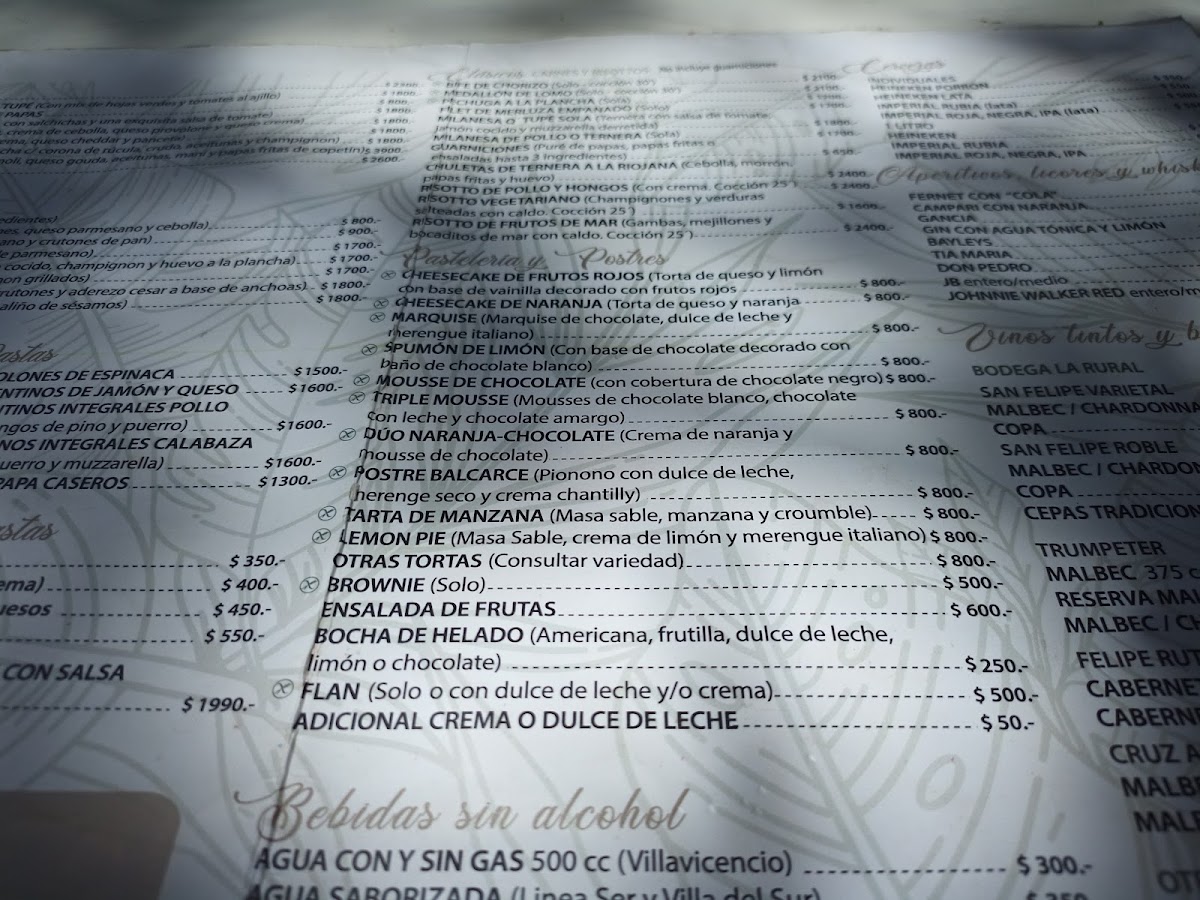 TUPÉ (Con mix de hojas verdes y tomates al ajillo)
PAPAS
con salchichas y una exquisita salsa de tomate)
crema de cebolla, queso provolone y queso
$ 1800.-
$ 1800.-
$ 2600.-
edientes)
nes, queso parmesano y cebolla) $ 800.-
ano y crutones de pan) $ 900.-
de parmesano) $ 1700.-
cocido, champignon y huevo a la plancha) $ 1700.-
non grillados) $ 1700.-
rutones y aderezo cesar a base de anchoas) $ 1800.-
aliño de sésamos) $ 1800.-
astas
OLONES DE ESPINACA $1500.-
NTINOS DE JAMÓN Y QUESO $ 1600.-
TINOS INTEGRALES POLLO
ngos de pino y puerro) $1600.-
NOS INTEGRALES CALABAZA
uerro y muzzarella) $1600.-
PAPA CASEROS $ 1300.-
astas
$ 350.-
ema) $ 400.-
uesos $ 450.-
$ 550.-
CON SALSA
$ 1990.-
Clásicos CARNES Y RISOTTOS No incluye guarniciones
BIFE DE CHORIZO
MEDALLÓN DE LOMO
PECHUGA A LA PLANCHA (Sola)
FILET DE MERLUZA EMPANADO (Solo)
MILANESA O TUPÉ SOLA (Ternera con salsa de tomate,
jamón cocido y muzzarella derretida)
MILANESA DE POLLO O TERNERA (Sola)
GUARNICIONES (Puré de papas, papas fritas o
ensaladas hasta 3 ingredientes) $ 650.-
CHULETAS DE TERNERA A LA RIOJANA (Cebolla, morrón,
papas fritas y huevo) $ 2400.-
RISOTTO DE POLLO Y HONGOS (Con crema. Cocción 25´) $ 2400.-
RISOTTO VEGETARIANO (Champignones y verduras
salteadas con caldo. Cocción 25´) $ 1600.-
RISOTTO DE FRUTOS DE MAR (Gambas, mejillones y
bocaditos de mar con caldo. Cocción 25´) $ 2400.-
Pastelería y Postres
CHEESECAKE DE FRUTOS ROJOS (Torta de queso y limón
con base de vainilla decorado con frutos rojos $ 800.-
CHEESECAKE DE NARANJA (Torta de queso y naranja $ 800.-
MARQUISE (Marquise de chocolate, dulce de leche y
merengue italiano) $ 800.-
SPUMÓN DE LIMÓN (Con base de chocolate decorado con
baño de chocolate blanco) $ 800.-
MOUSSE DE CHOCOLATE (con cobertura de chocolate negro) $ 800.-
TRIPLE MOUSSE (Mousses de chocolate blanco, chocolate
con leche y chocolate amargo) $ 800.-
DÚO NARANJA-CHOCOLATE (Crema de naranja y
mousse de chocolate) $ 800.-
POSTRE BALCARCE (Pionono con dulce de leche,
merenge seco y crema chantilly) $ 800.-
TARTA DE MANZANA (Masa sable, manzana y croumble) $ 800.-
LEMON PIE (Masa Sable, crema de limón y merengue italiano) $ 800.-
OTRAS TORTAS (Consultar variedad) $ 800.-
BROWNIE (Solo) $ 500.-
ENSALADA DE FRUTAS $ 600.-
BOCHA DE HELADO (Americana, frutilla, dulce de leche,
limón o chocolate) $ 250.-
FLAN (Solo o con dulce de leche y/o crema) $ 500.-
ADICIONAL CREMA O DULCE DE LECHE $ 50.-
Bebidas sin alcohol
AGUA CON Y SIN GAS 500 cc (Villavicencio) $ 300.-
AGUA SABORIZADA (Linea Ser y Villa del Sur) $ 350.-
INDIVIDUALES
HEINKEN PORRÓN
HEINKEN LATA
IMPERIAL RUBIA (lata)
IMPERIAL ROJA, NEGRA, IPA (lata)
LITRO
HEINEKEN
IMPERIAL RUBIA
IMPERIAL ROJA, NEGRA, IPA
Aperitivos, licores y whisk
FERNET CON "COLA"
CAMPARI CON NARANJA
GANCIA
GIN CON AGUA TÓNICA Y LIMÓN
BAYLEYS
TIA MARIA
DON PEDRO
JB entero/medio
JOHNNIE WALKER RED entero/m
Vinos tintos y b
BODEGA LA RURAL
SAN FELIPE VARIETAL
MALBEC / CHARDONNA
COPA
SAN FELIPE ROBLE
MALBEC / CHARDON
COPA
CEPAS TRADICION
TRUMPETER
MALBEC 375 c
RESERVA MAL
MALBEC / CH
FELIPE RUT
CABERNET
CABERNE
CRUZ A
MALB
MAL
OT